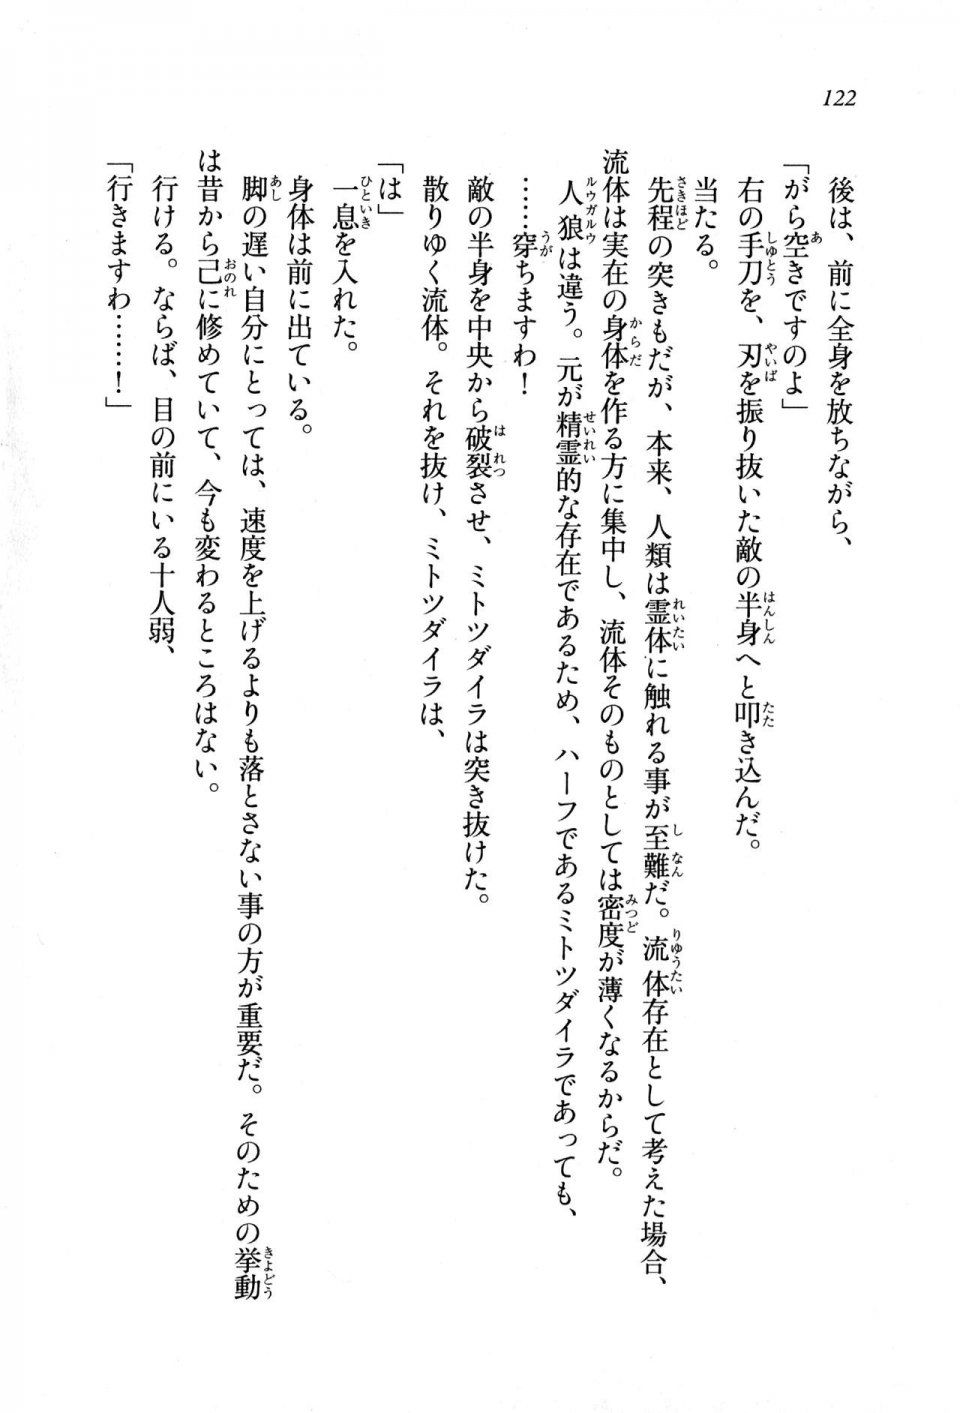 122
後は、前に全身を放ちながら、
「がら空きですのよ」
右の手刀を、刃を振り抜いた敵の半身へと叩き込んだ。
当たる。
先程の突きもだが、本来、人類は霊体に触れる事が至難だ。流体存在として考えた場合、
流体は実在の身体を作る方に集中し、流体そのものとしては密度が薄くなるからだ。
人狼は違う。元が精霊的な存在であるため、ハーフであるミトツダイラであっても、
……穿ちますわ！
敵の半身を中央から破裂させ、ミトツダイラは突き抜けた。
散りゆく流体。それを抜け、ミトツダイラは、
「は」
一息を入れた。
身体は前に出ている。
脚の遅い自分にとっては、速度を上げるよりも落とさない事の方が重要だ。そのための挙動
は昔から己に修めていて、今も変わるところはない。
行ける。ならば、目の前にいる十人弱、
「行きますわ……！」